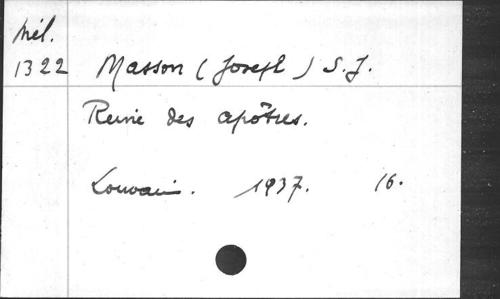 Mél.
1322 Masson (Joseph) S.J.
Reine des apôtres.
Louvain. 1937. 16.